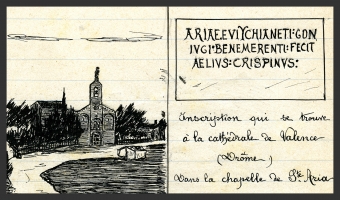 ARIAE EVTYCHIANETI: CON
IVGI BENEMERENTI: FECIT
AELIVS: CRISPINVS:
Inscription qui se trouve
à la cathédrale de Valence
(Drôme)
Dans la chapelle de Ste Aria